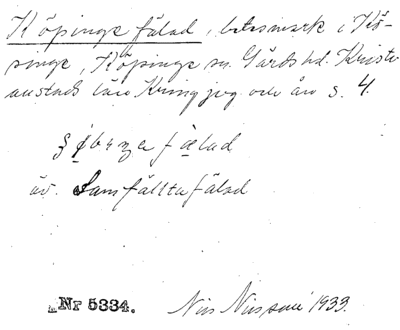 Köpinge fälad, betesmark i Kö-
pinge, Köpinge sn. Gärds hd. Kristi-
anstads län. Kring jvg. och ån s. 4.
fälad
äv. Samfällta fälad
Nr 5334. Nils Nilsson 1933.